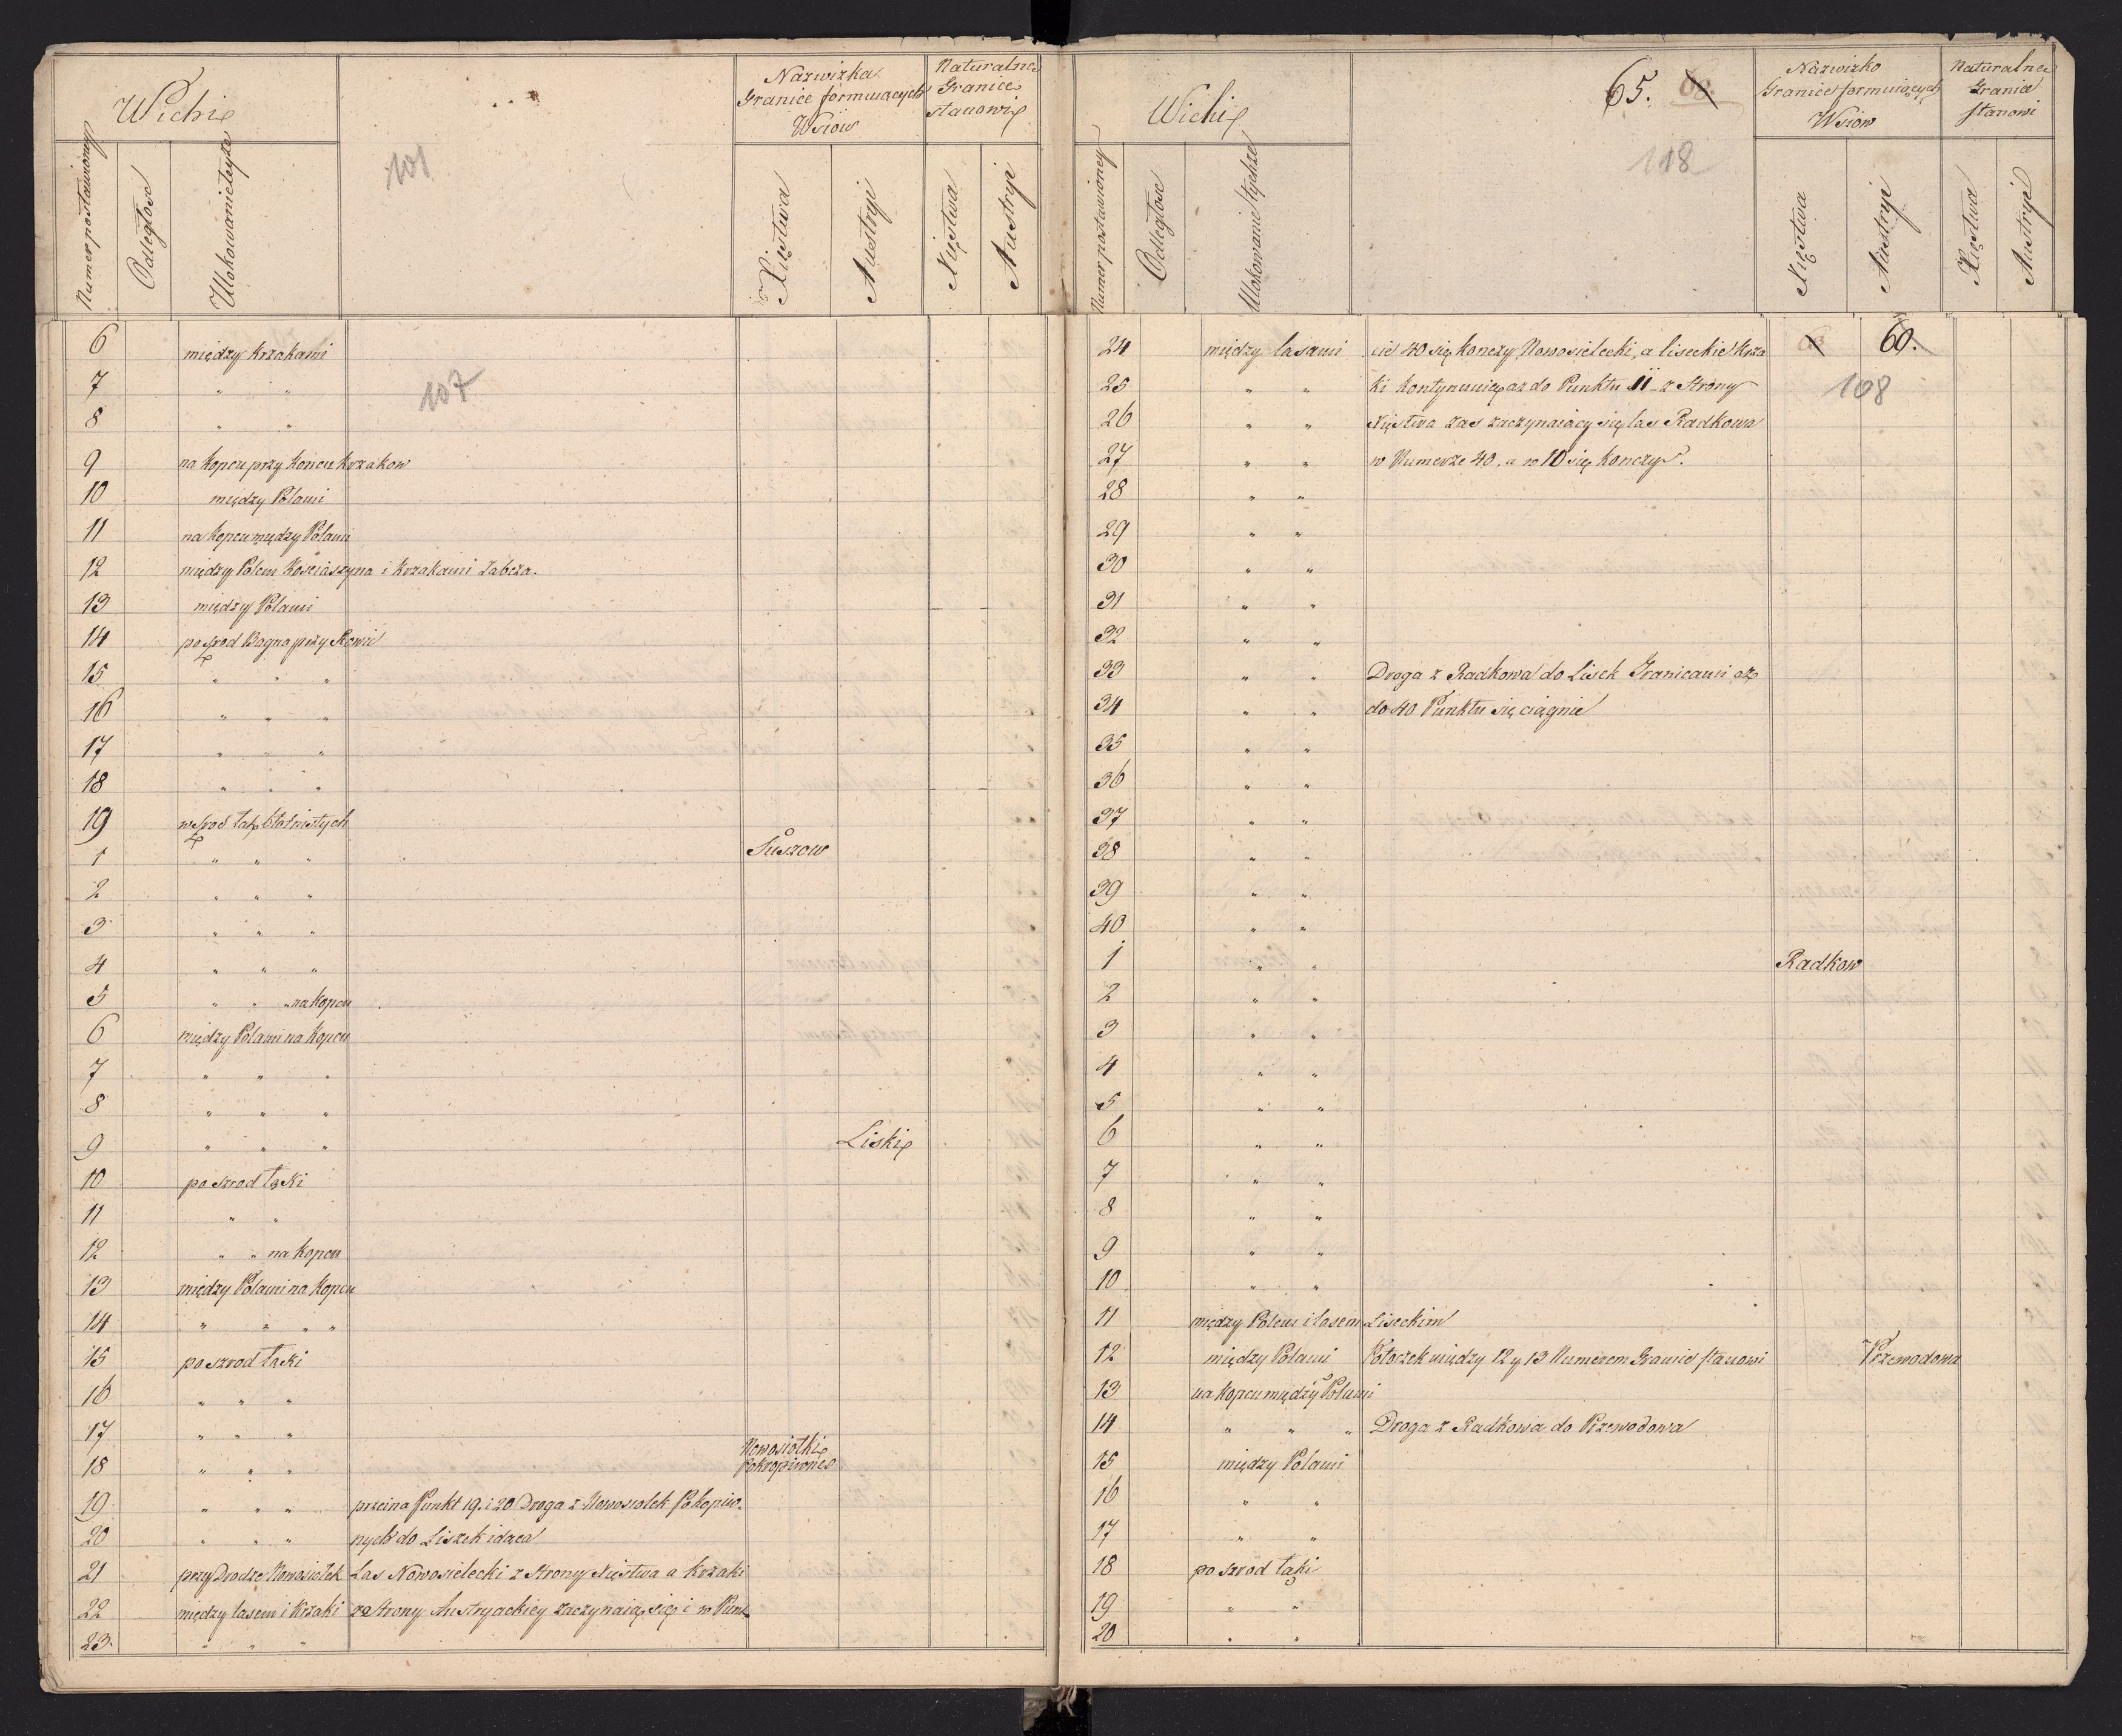 Wichi
Nazwizka
Granice formuiących
Wsiow
Naturalne
Granice
stanowi
Numer postawioney
Odległosc
Ulokowanie tyże
Xięstwa
Austryi
Xięstwa
Austryi
101
6 między krzakami
107
7 " "
8 " "
9 na kopcu przy koncu krzakow
10 między Polami
11 na kopcu między Polami
12 między Polem Kościaszyna i krzakami Żabcza.
13 między Polami
14 pośrod Bagna przy Rowie
15 " " "
16 " " "
17 " " "
18 " " "
19 wśrod łąk błotnistych
1 " " " Suszow
2 " " "
3 " " "
4 " " "
5 " " " na kopcu
6 między Polami na kopcu
7 " " "
8 " " "
9 " " " Liski
10 poszrod łąki
11 " "
12 " " na kopcu
13 między Polami na kopcu
14 " " " "
15 poszrod łąki
16 " " "
17 " " "
18 " " " Nowosiołki
Pokropiwne
19 " " " przeina Punkt 19. i 20 Droga z Nowosiolek Pokopiw-
20 " " " nych do Liszek idąca
21 przy Drodze Nowosiołek Las Nowosielecki z Strony Xięstwa a krzaki
22 między lasem i krzaki ze Strony Austryackiey zaczynaią się i w Punk-
23. " " "
Wichi
65.
118
Nazwizko
Granice formuiących
Wsiow
Naturalne
Granice
stanowi
Numer postawioney
Odległosc
Ulokowanie tychże
Xięstwa
Austryi
Xięstwa
Austryi
24 między lasami cie 40 się konczy Nowosielecki, a liseckie krza 60.
25 " " ki kontynuuią aż do Punktu 11 - z Strony 108
26 " " Xięstwa zas zaczynaiący się las Radkowa
27 " " w Numerze 40, a w 10 się konczy.
28 " "
29 " "
30 " "
31 " "
32 " "
33 " " Droga z Radkowa do Lisek Granicami aż
34 " " do 40 Punktu się ciągnie
35 " "
36 " "
37 " "
38 " "
39 " "
40 " "
1 " " Radkow
2 " "
3 " "
4 " "
5 " "
6 " "
7 " "
8 " "
9 " "
10 " "
11 między Polem i lasem Liseckim
12 między Polami Potoczek między 12 y 13 Numerem Granice stanowi Przewodowa
13 na kopcu między Polami
14 " " " Droga z Radkowa do Przewodowa
15 między Polami
16 " "
17 " "
18 poszrod łąki
19 " "
20 " "